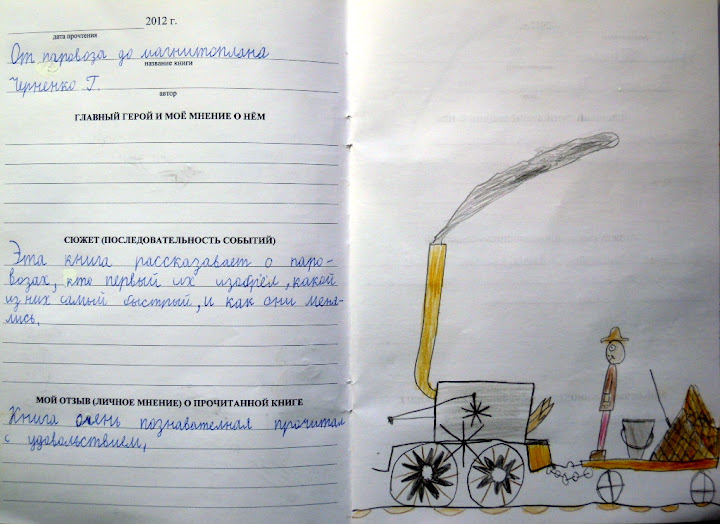 2012 г.
дата прочтения
От паровоза до магнитоплана
название книги
Черненко Г.
автор
ГЛАВНЫЙ ГЕРОЙ И МОЁ МНЕНИЕ О НЁМ
СЮЖЕТ (ПОСЛЕДОВАТЕЛЬНОСТЬ СОБЫТИЙ)
Эта книга рассказавает о паро-
возах, кто первый их изобрёл, какой
из них самый быстрый, и как они меня-
лись.
МОЙ ОТЗЫВ (ЛИЧНОЕ МНЕНИЕ) О ПРОЧИТАННОЙ КНИГЕ
Книга очень познавателная прочитал
с удовольствием,